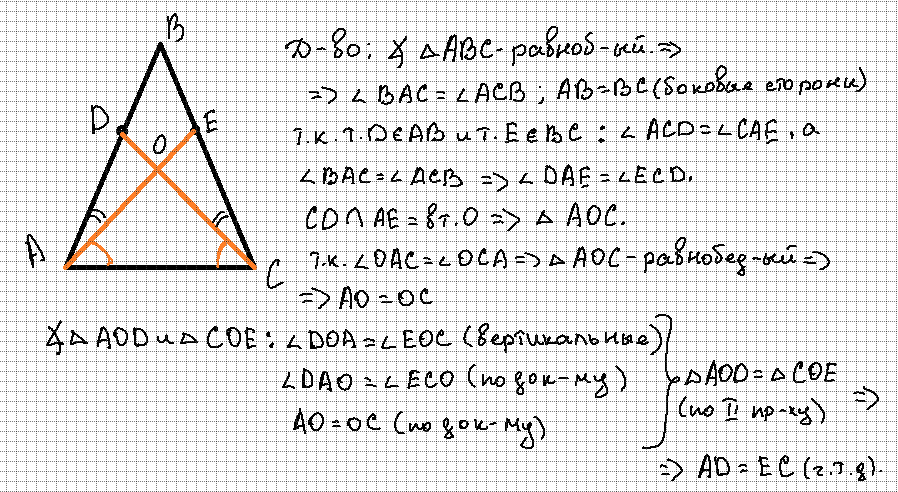 B
D
E
O
A
C
Д-во: ∢ △ABC-равноб-ый. =>
=> ∠BAC = ∠ACB ; AB=BC (боковые стороны)
т.к. т. D∈AB и т. E∈BC : ∠ACD = ∠CAE, а
∠BAC = ∠ACB => ∠DAE = ∠ECD.
CD ∩ AE = в т. O => △ AOC.
т.к. ∠OAC = ∠OCA => △ AOC - равнобед-ый =>
=> AO = OC
∢ △ AOD и △ COE : ∠DOA = ∠EOC (вертикальные)
∠DAO = ∠ECO (по док-му)
AO = OC (по док-му)
△AOD = △COE
(по II пр-ку) =>
=> AD = EC (ч.т.д).